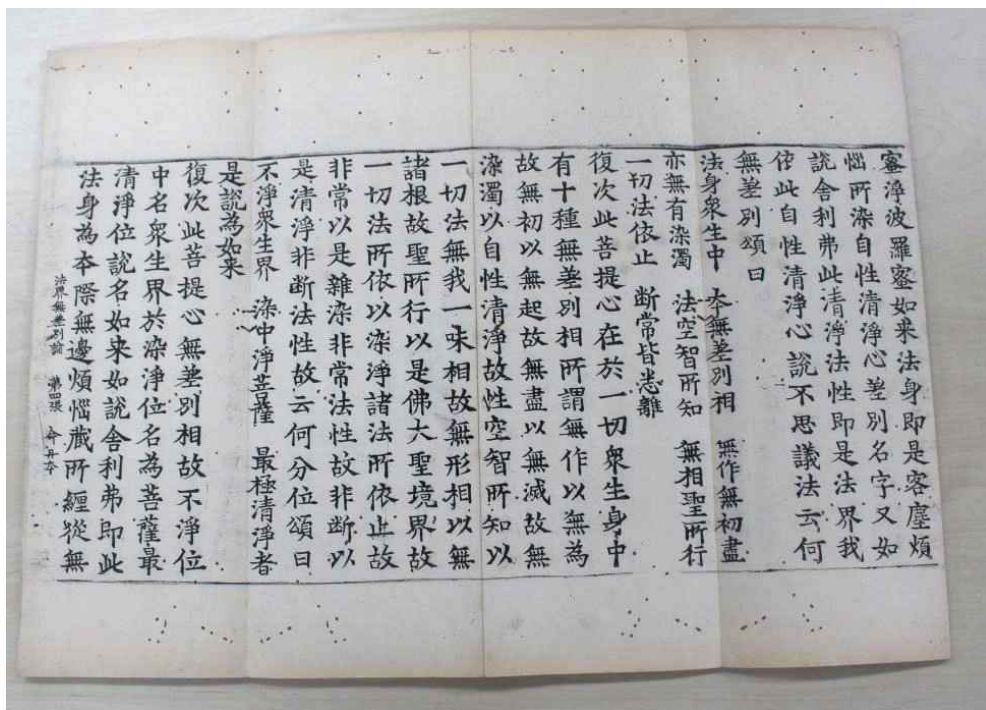 蜜淨波羅蜜如来法身即是客塵煩
惱所染自性清淨心差別名字又如
說舍利弗此清淨法性即是法界我
依此自性清淨心說不思議法云何
無差別頌曰
法身衆生中　夲無差別相　無作無初盡
亦無有染濁　法空智所知　無相聖所行
一切法依止　断常皆悉離
復次此菩提心在於一切衆生身中
有十種無差別相所謂無作以無為
故無初以無起故無盡以無滅故無
染濁以自性清淨故性空智所知以
一切法無我一味相故無形相以無
諸根故聖所行以是佛大聖境界故
一切法所依以染淨諸法所依止故
非常以是雜染非常法性故非断以
是清淨非断法性故云何分位頌曰
不淨衆生界　染中淨菩薩　最極清淨者
是說為如来
復次此菩提心無差別相故不淨位
中名衆生界於染淨位名為菩薩最
清淨位說名如来如說舍利弗即此
法身為夲際無邊煩惱藏所纏從無
法界無差別論　第四張